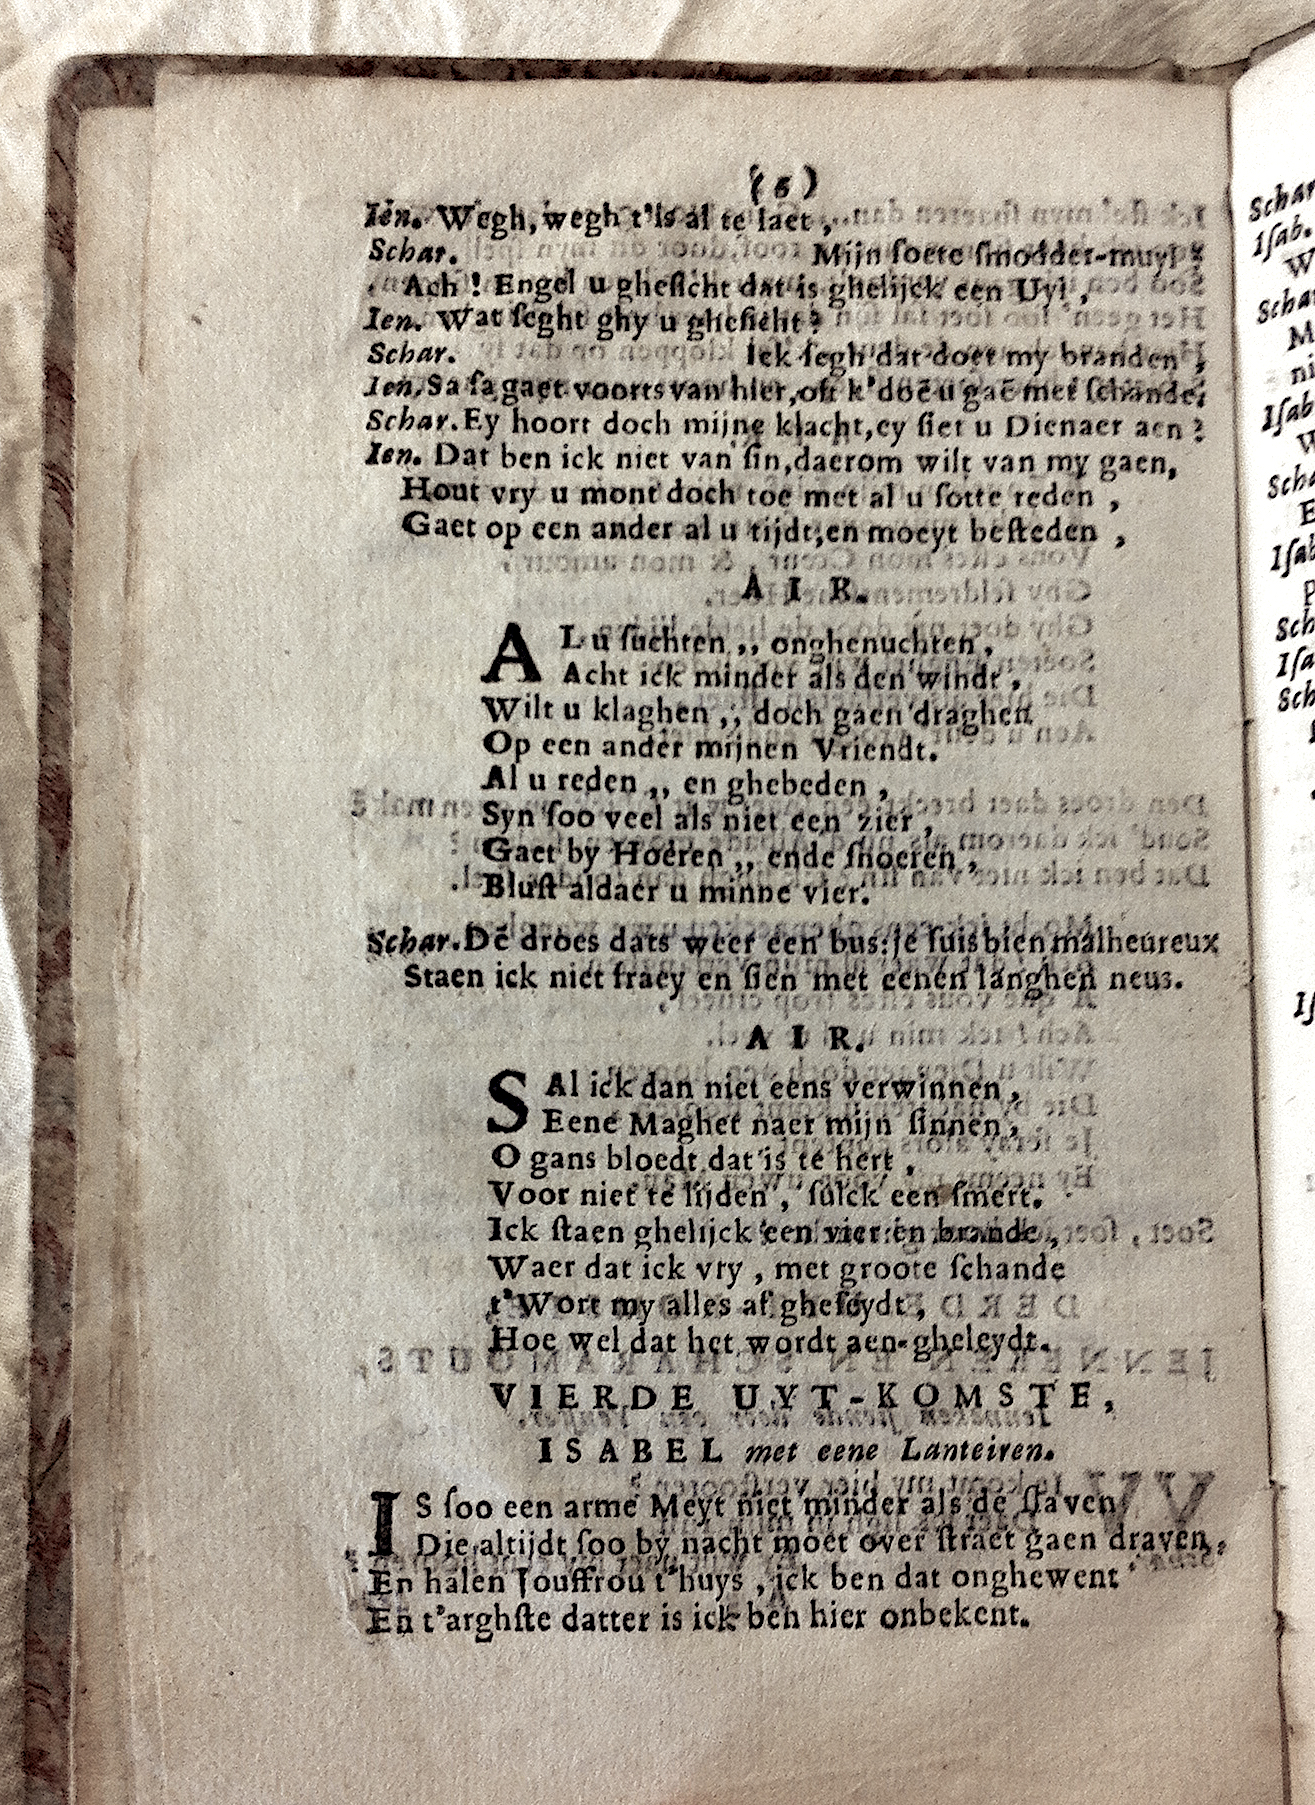 (6)
Ien. Wegh, wegh t'is al te laet,
Schar. Mijn soete smodder-muyl?
Ach! Engel u ghesicht dat is ghelijck een Uyl,
Ien. Wat seght ghy u ghesicht?
Schar. Ick segh dat doet my branden,
Ien. Sa sa gaet voorts van hier, oft k'doē u gaē met schande,
Schar. Ey hoort doch mijne klacht, ey siet u Dienaer aen?
Ien. Dat ben ick niet van sin, daerom wilt van my gaen,
Hout vry u mont doch toe met al u sotte reden,
Gaet op een ander al u tijdt, en moeyt besteden,
AIR.
AL u suchten,, onghenuchten,
Acht ick minder als den windt,
Wilt u klaghen,, doch gaen draghen
Op een ander mijnen Vriendt.
Al u reden,, en ghebeden,
Syn soo veel als niet een zier,
Gaet by Hoeren,, ende snoeren,
Blust aldaer u minne vier.
Schar. Dē droes dats weer een bus: je suis bien malheureux
Staen ick niet fraey en sien met eenen langhen neus.
AIR.
SAl ick dan niet eens verwinnen,
Eene Maghet naer mijn sinnen,
O gans bloedt dat is te hert,
Voor niet te lijden, sulck een smert.
Ick staen ghelijck een vier en brande,
Waer dat ick vry, met groote schande
t'Wort my alles af gheseydt,
Hoe wel dat het wordt aen-gheleydt.
VIERDE UYT-KOMSTE,
ISABEL met eene Lanteiren.
IS soo een arme Meyt niet minder als de slaven
Die altijdt soo by nacht moet over straet gaen draven,
En halen Jouffrou t'huys, ick ben dat onghewent
En t'arghste datter is ick ben hier onbekent.